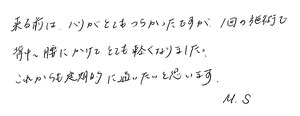 来る前は、ハリがとてもつらかったですが、1回の施術で
背中、腰にかけてとても軽くなりました。
これからも定期的に通いたいと思います。
M.S